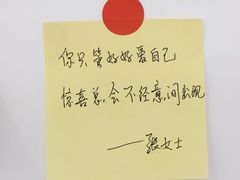 你只管好好爱自己
惊喜总会不经意间出现
——张女士